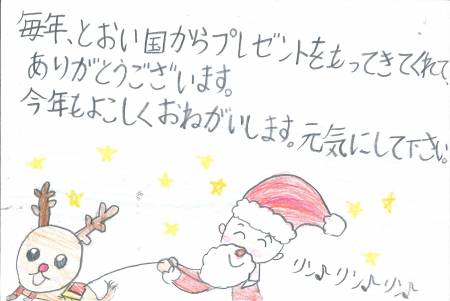 毎年、とおい国からプレゼントをもってきてくれて、
ありがとうございます。
今年もよこしくおねがいします。元気にして下さい。
リン♪リン♪リン♪